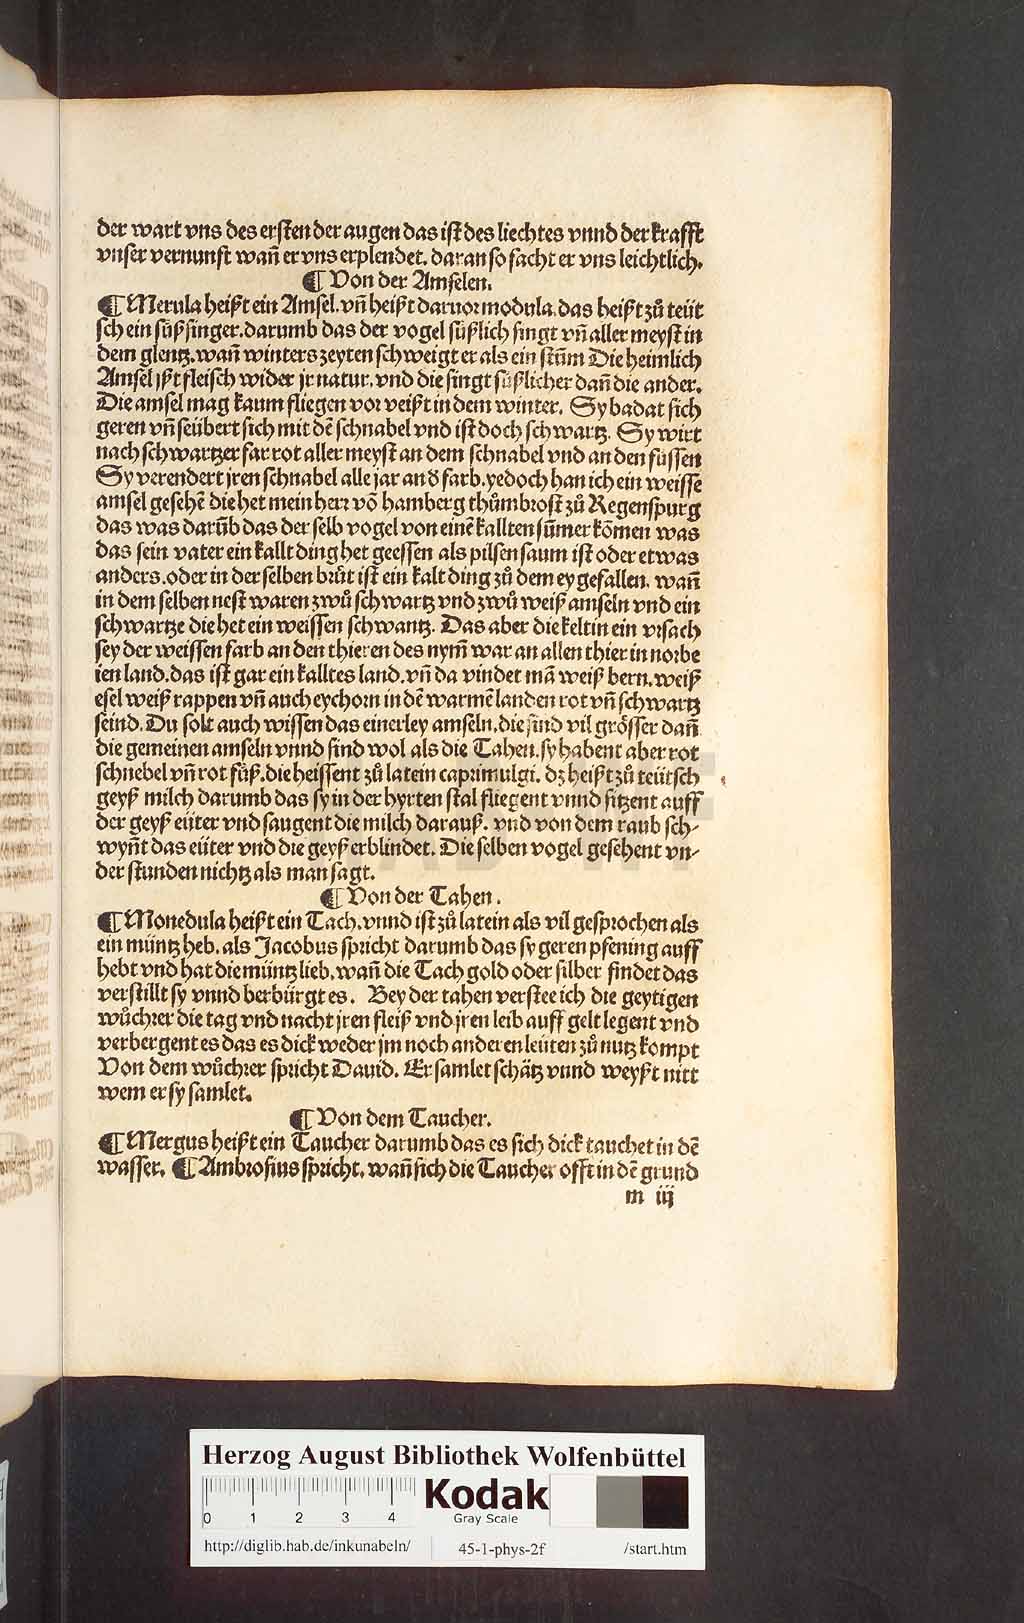 der wart vns des ersten der augen das ist des liechtes vnnd der krafft
vnser vernunft wañ er vns erplendet. daran so facht er vns leichtlich.
¶ Von der Amselen.
¶ Merula heißt ein Amsel. vñ heißt daruor modula. das heißt zů teüt
sch ein süßsinger. darumb das der vogel süßlich singt vñ aller meyst in
dem glentz. wañ winters zeyten schweigt er als ein stūm Die heimlich
Amsel jßt fleisch wider jr natur. vnd die singt süßlicher dañ die ander.
Die amsel mag kaum fliegen vor veißt in dem winter. Sy badat sich
geren vñ seübert sich mit dē schnabel vnd ist doch schwartz. Sy wirt
nach schwartzer far rot aller meyst an dem schnabel vnd an den füssen
Sy verendert jren schnabel alle jar an d̕ farb. yedoch han ich ein weisse
amsel gesehē die het mein herr vō hamberg thůmbrost zů Regenspurg
das was darūb das der selb vogel von einē kallten sūmer kōmen was
das sein vater ein kallt ding het geessen als pilsen saum ist oder etwas
anders. oder in der selben brůt ist ein kalt ding zů dem ey gefallen. wañ
in dem selben nest waren zwů schwartz vnd zwů weiß amseln vnd ein
schwartze die het ein weissen schwantz. Das aber die kelt in ein vrsach
sey der weissen farb an den thieren des nym̄ war an allen thier in norbe
ien land. das ist gar ein kalltes land. vñ da vindet mā weiß bern. weiß
esel weiß rappen vñ auch eychorn in dē warmē landen rot vñ schwartz
seind. Du solt auch wissen das einerley amseln. die sind vil grösser dañ
die gemeinen amseln vnnd sind wol als die Tahen. sy habent aber rot
schnebel vñ rot füß. die heissent zů latein caprimulgi. dz heißt zů teütsch
geyß milch darumb das sy in der hyrten stal fliegent vnnd sitzent auff
der geyß eüter vnd saugent die milch darauß. vnd von dem raub sch⸗
wyñt das eüter vnd die geyß erblindet. Die selben vogel gesehent vn⸗
der stunden nichtz als man sagt.
¶ Von der Tahen.
¶ Monedula heißt ein Tach. vnnd ist zů latein als vil gesprochen als
ein müntz heb. als Jacobus spricht darumb das sy geren pfening auff
hebt vnd hat die müntz lieb. wañ die Tach gold oder silber findet das
verstillt sy vnnd berbürgt es. Bey der tahen verstee ich die geytigen
wůchrer die tag vnd nacht jren fleiß vnd jren leib auff gelt legent vnd
verbergent es das es dick weder jm noch anderen leüten zů nutz kompt
Von dem wůchrer spricht Dauid. Er samlet schätz vnnd weyßt nitt
wem er sy samlet.
¶ Von dem Taucher.
¶ Mergus heißt ein Taucher darumb das es sich dick tauchet in dē
wasser. ¶ Ambrosius spricht. wañ sich die Taucher offt in dē grund
m iij
Herzog August Bibliothek Wolfenbüttel
0 1 2 3 4
Kodak
Gray Scale
http://diglib.hab.de/inkunabeln/ 45-1-phys-2f /start.htm